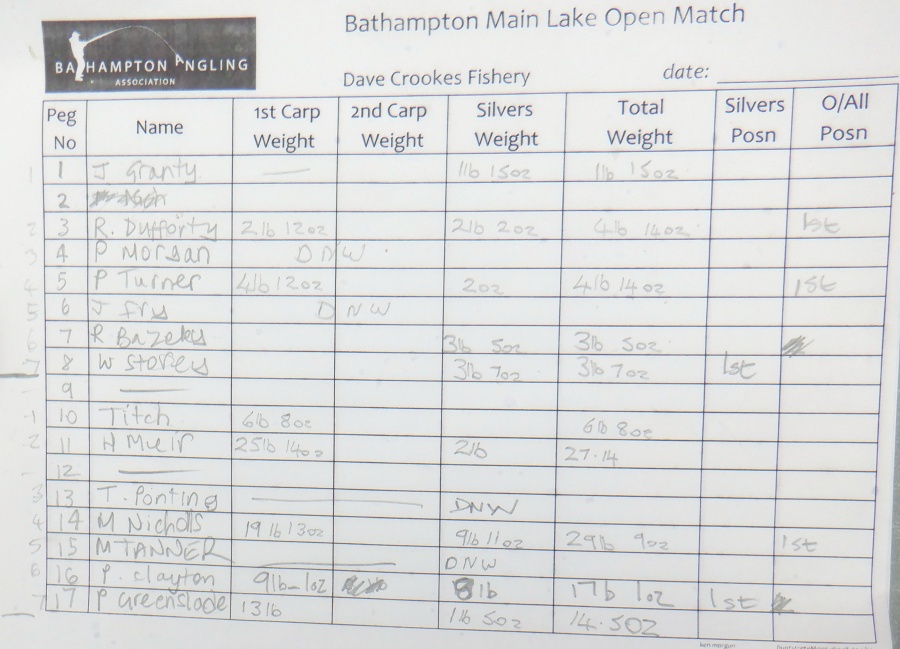 Bathampton Main Lake Open Match
BATHAMPTON ANGLING
ASSOCIATION
Dave Crookes Fishery date:
Peg No Name 1st Carp Weight 2nd Carp Weight Silvers Weight Total Weight Silvers Posn O/All Posn
1 1 J Granty — 1lb 15oz 1lb 15oz
2
2 3 R. Dufforty 2lb 12oz 2lb 2oz 4lb 14oz 1st
3 4 P Morgan DNW
4 5 P Turner 4lb 12oz 2oz 4lb 14oz 1st
5 6 J Fry DNW
6 7 R Bazeky 3lb 5oz 3lb 5oz
7 8 W Storey 3lb 7oz 3lb 7oz 1st
- 9 —
1 10 Titch 6lb 8oz 6lb 8oz
2 11 H Muir 25lb 14oz 2lb 27.14
- 12 —
3 13 T. Ponting — DNW
4 14 M Nicholls 19lb 13oz 9lb 11oz 29lb 9oz 1st
5 15 M TANNER — DNW
6 16 P. Clayton 9lb-1oz 8lb 17lb 1oz 1st
7 17 P Greenslade 13lb 1lb 5oz 14.5OZ